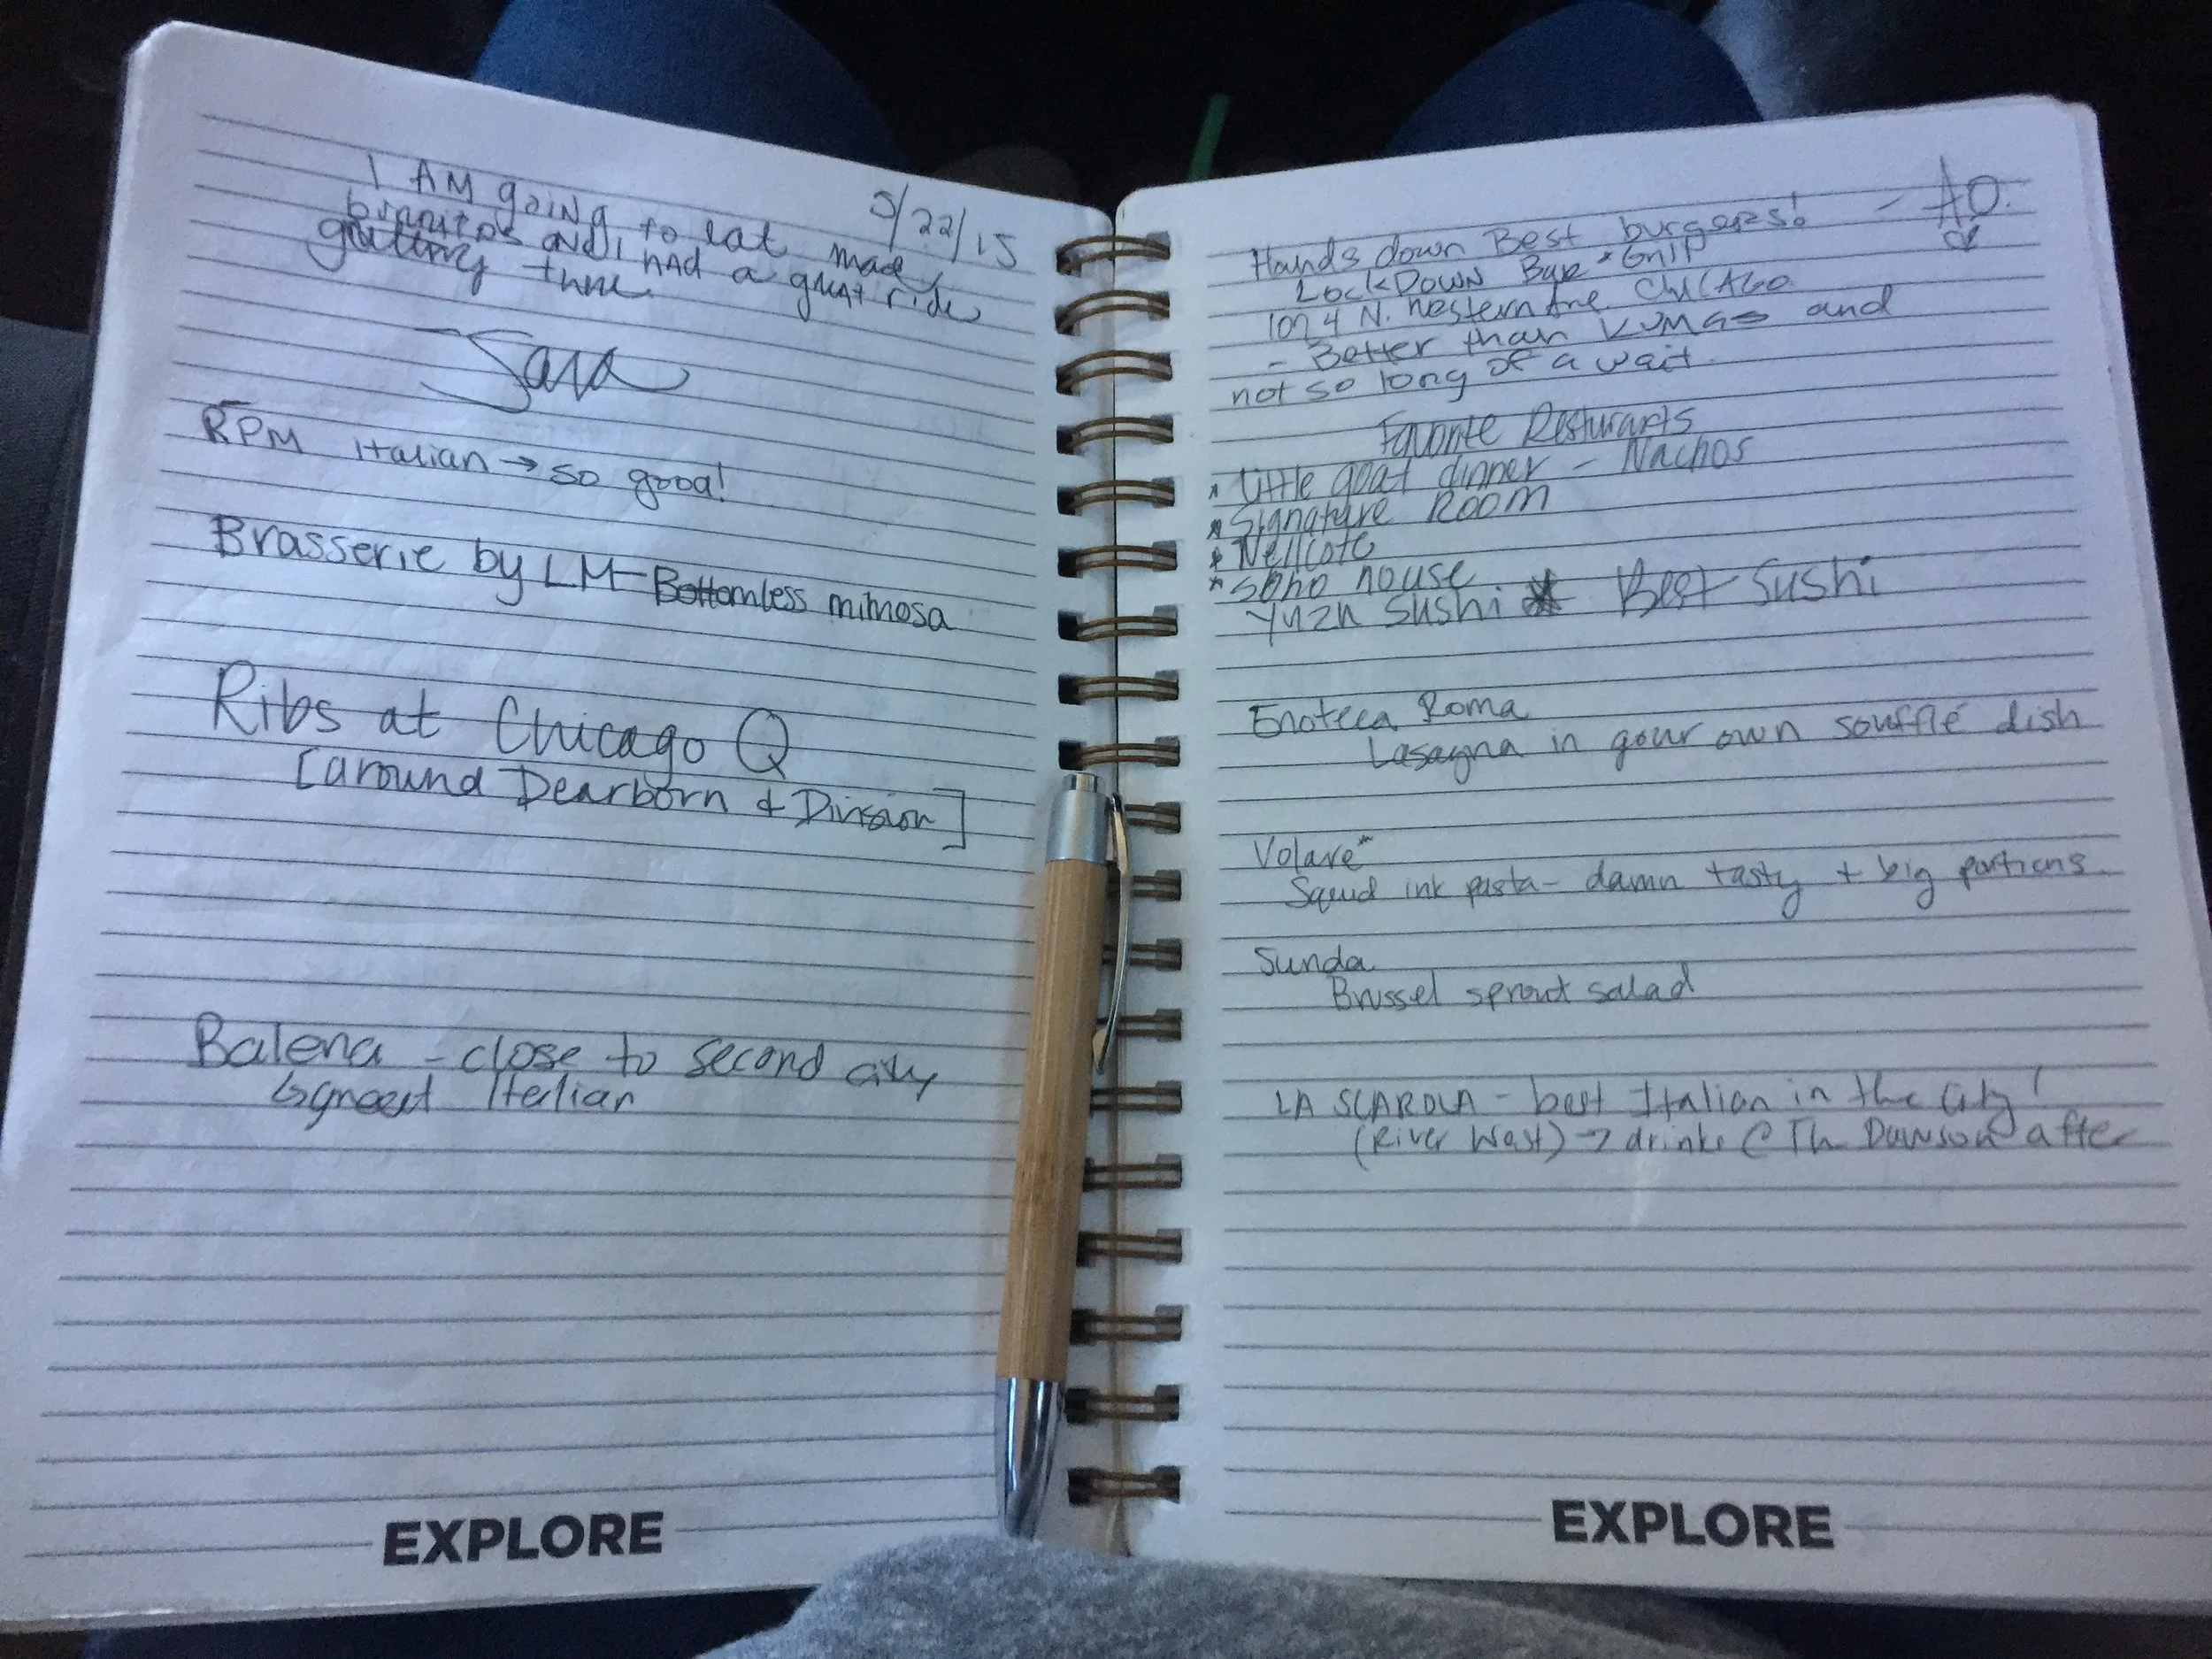 5/22/15
I AM going to eat
burritos and I had a great ride
getting there.
Sara
RPM Italian → so good!
Brasserie by LM - Bottomless mimosa
Ribs at Chicago Q
[around Dearborn & Division]
Balena - close to second city
↳ great Italian
EXPLORE
Hands down Best burgers! - AO.
LockDown Bar & Grill
1024 N. Western Ave. Chicago
- Better than KUMAS and
not so long of a wait.
Favorite Resturants
* Little goat dinner - Nachos
* Signature Room
* Nellcote
* Soho house
Yuzu Sushi * Best Sushi
Enoteca Roma
Lasagna in your own soufflé dish
Volare*
Squid ink pasta - damn tasty + big portions.
Sunda
Brussel sprout salad
LA SCAROLA - best Italian in the City!
(River West) → drinks @ Th Dawson after
EXPLORE